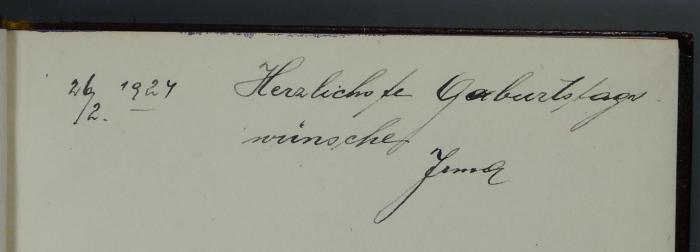 26/2. 1927 Herzlichste Geburtstags-
wünsche
Irma